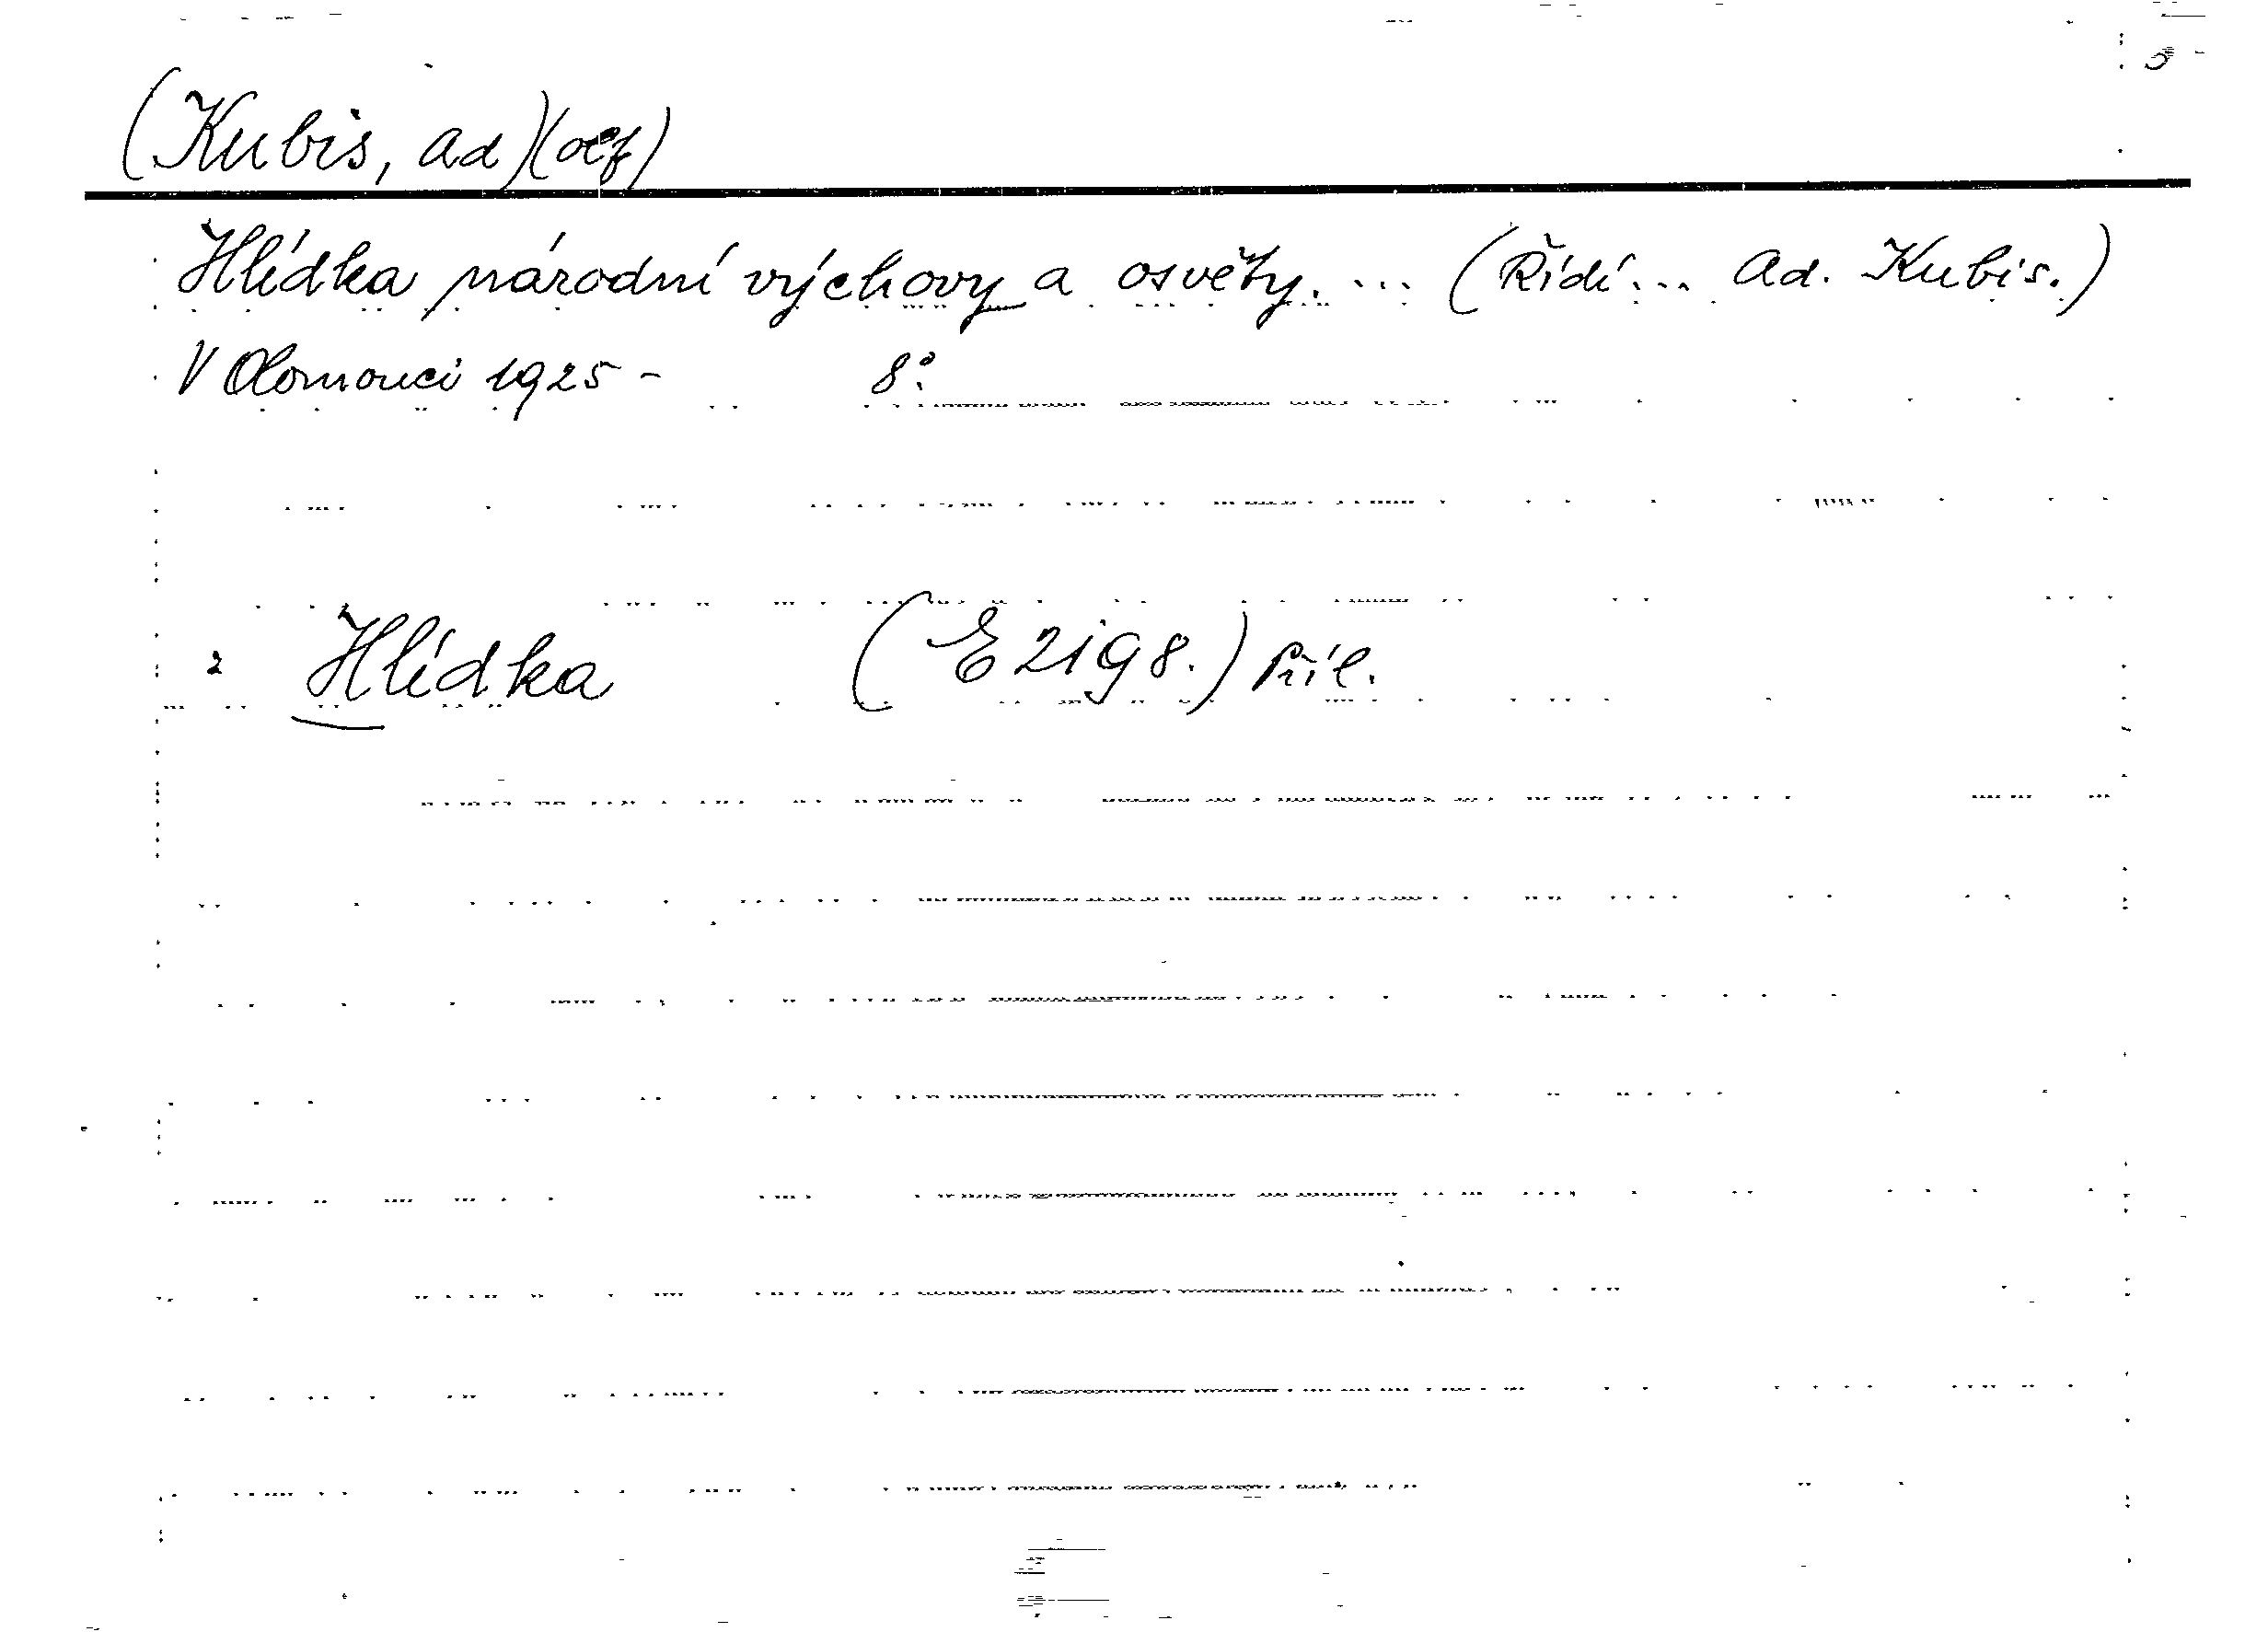 (Kubis, Ad)(olf)
Hlídka národní výchovy a osvěty. ... (Řídí... Ad. Kubis.)
V Olomouci 1925 - 8°.
2 Hlídka (E 2198.) Příl.